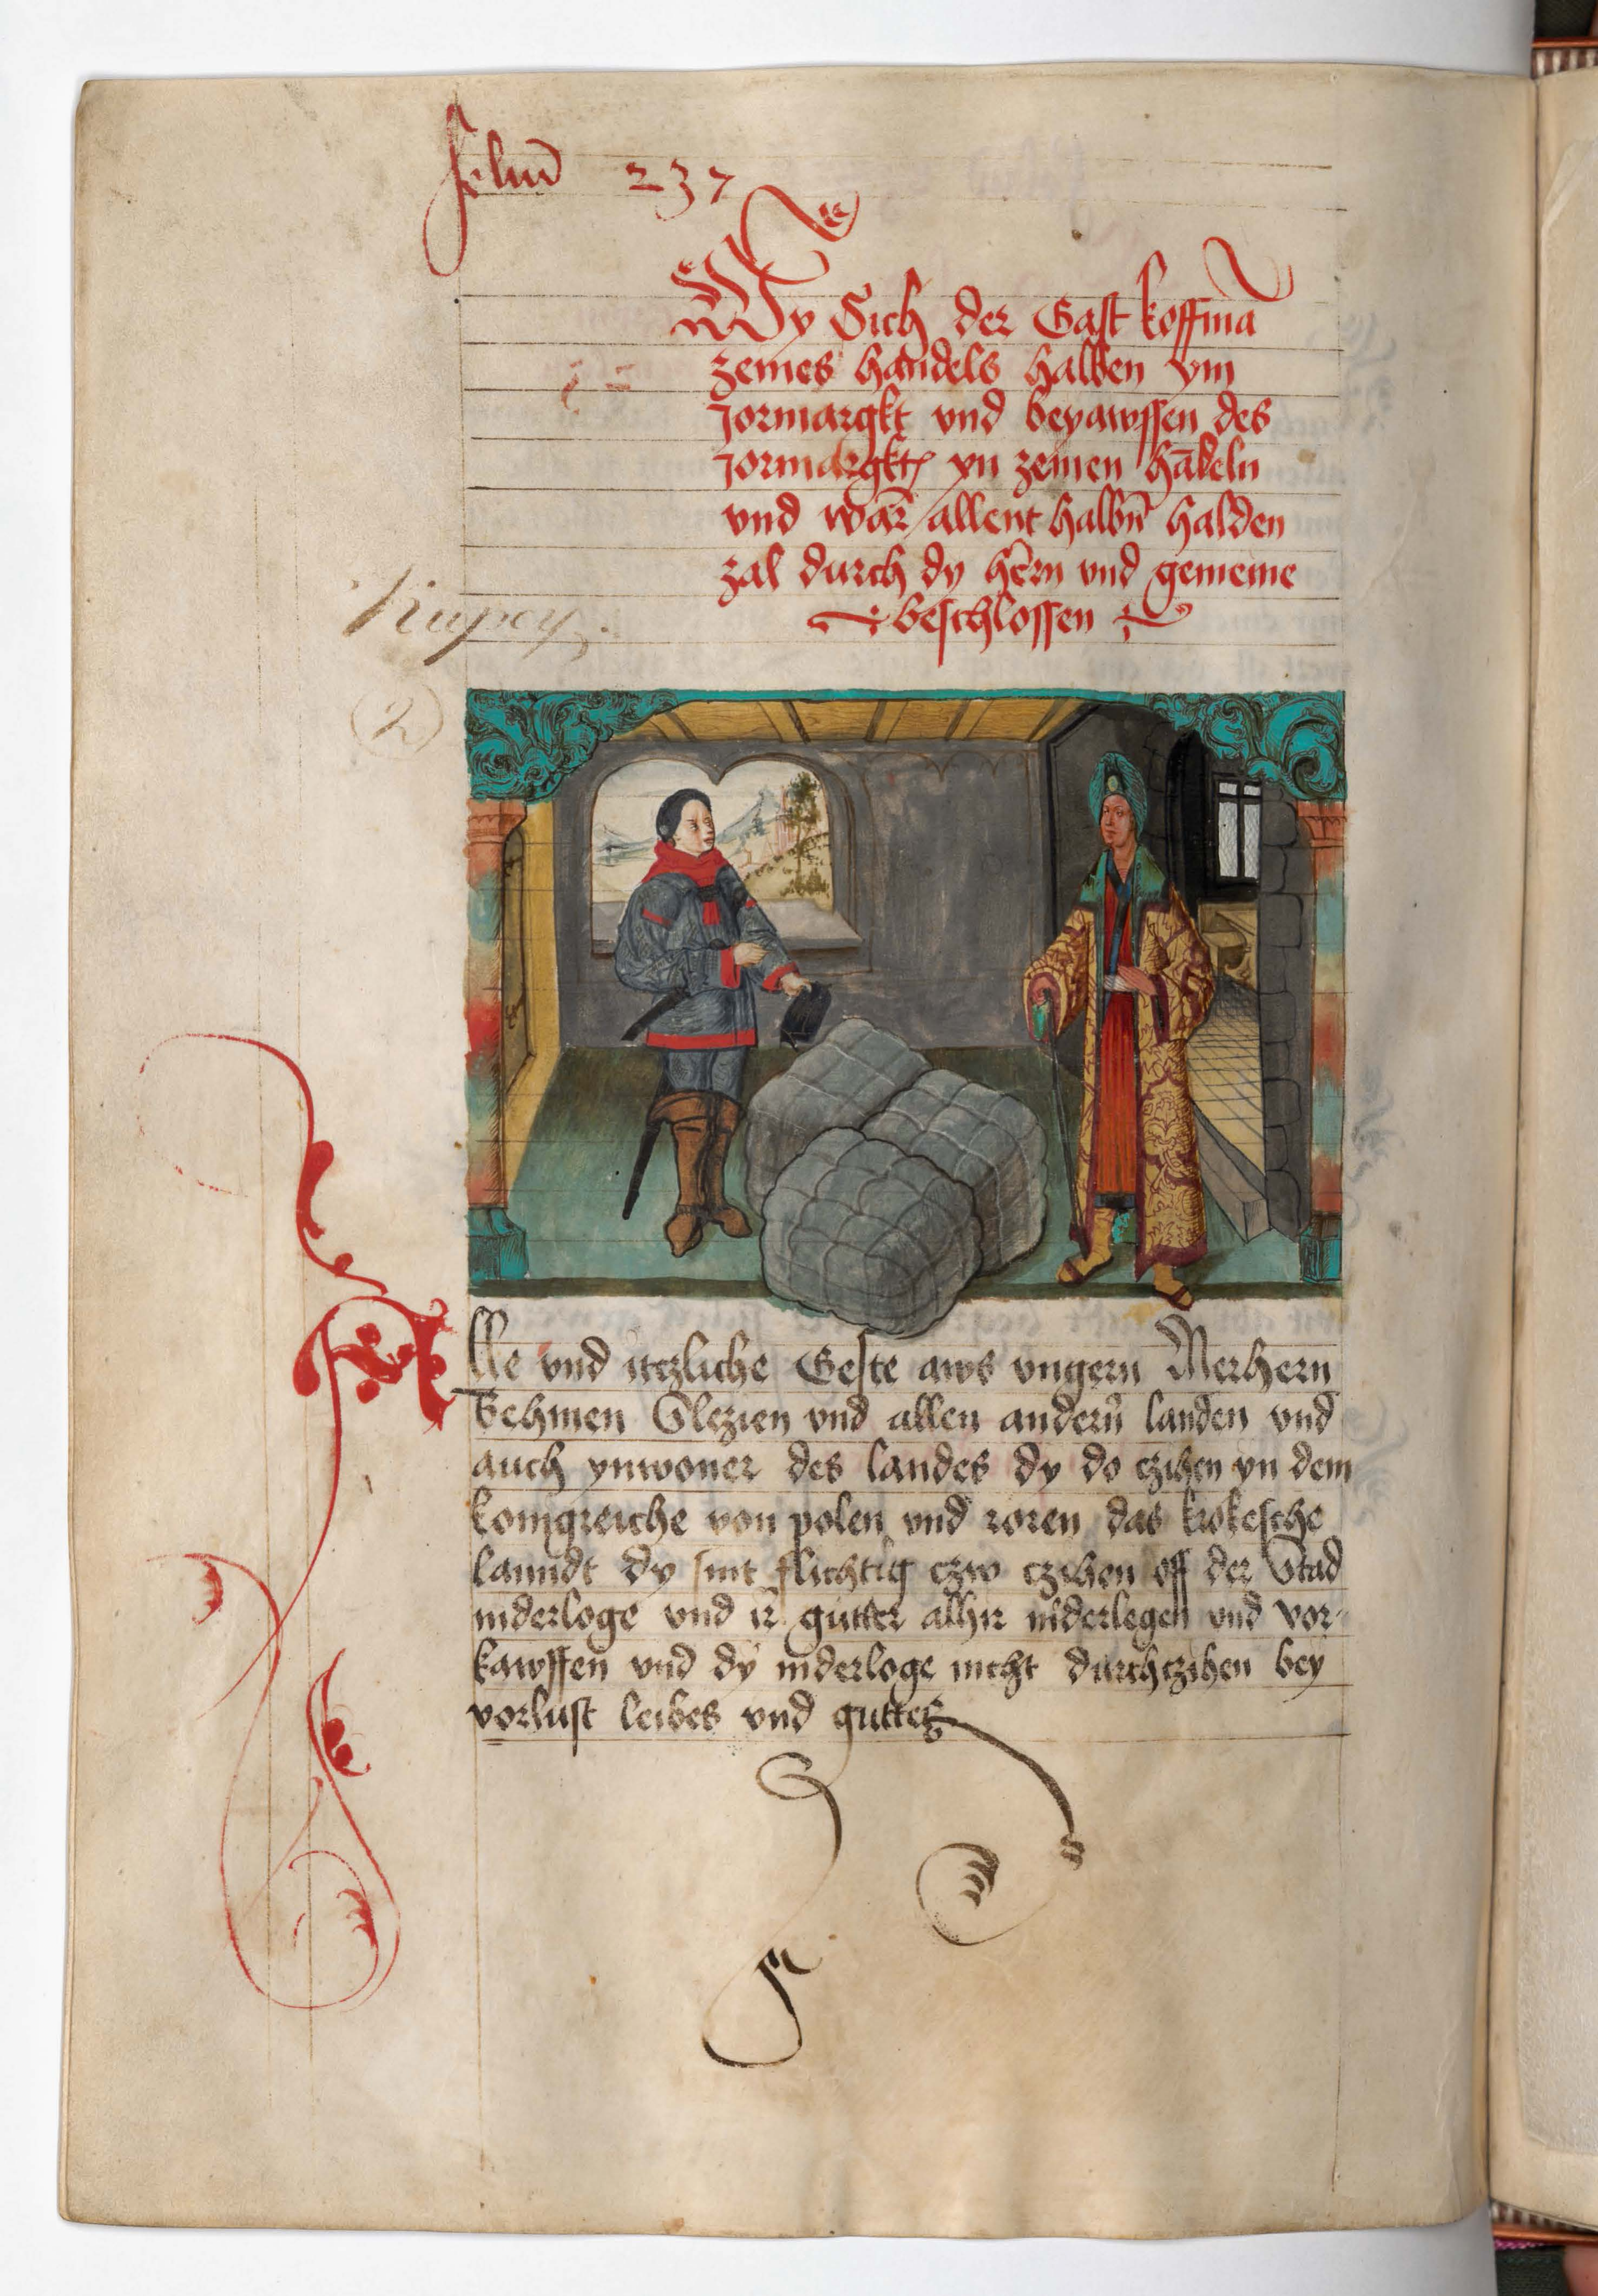 foliu̅ 237
Wy Sich der Gast koffma̅
zeines handels halben ym
Jormargkt vnd beyawssen des
Jormargkt yn zeinen ha̅deln
vnd war̅ allent halbn̅ halden
zal durch dy her̅n vnd gemeine
beschlossen
Kupcy.
2
Alle vnd itczliche Geste aws vngern Merhern
Behmen Slezien vnd allen andern̅ landen vnd
auch ynwoner des landes dy do czihen yn dem
konigreiche von polen vnd roren das krokesche
lanndt dy sint flichtig czw czihen off der Stad
niderloge vnd ir gutter alhir niderlegen vnd vor-
kawffen vnd dy niderloge nicht durchczihen bey
vorlust leibes vnd guttes